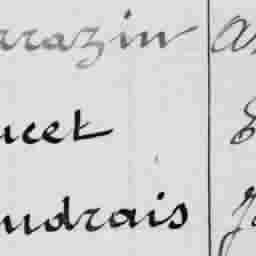 rrazin
ucet
udrais